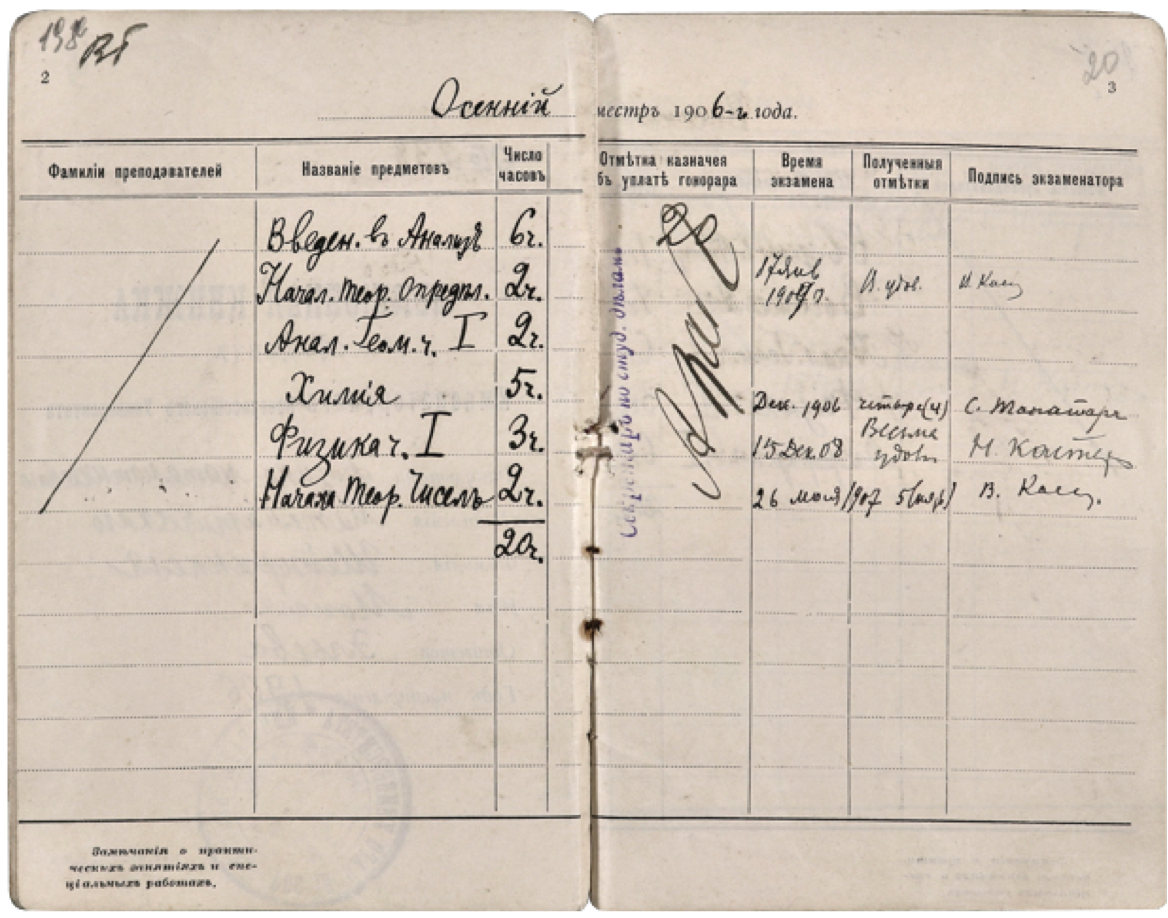 2
3
20
Осенній местръ 1906-г. года.
Фамиліи преподавателей
Названіе предметовъ
Число часовъ
Отмѣтка казначея бъ уплатѣ гонорара
Время экзамена
Полученныя отмѣтки
Подпись экзаменатора
Введен. въ Анализъ 6ч.
Начал. теор. опредѣл. 2ч. 17 Янв 1907 г. В. удов.
Анал. Геом. ч. I 2ч.
Химія 5ч. Дек. 1906 четыре (4) С. Танатаръ
Физика ч. I 3ч. 15 Дек 08 Весьма удовл
Начала Теор. Чиселъ 2ч. 26 мая 1907 5 (пять)
20ч.
Секретарь по студ. дѣламъ
Замѣчанія о практи-
ческихъ занятіяхъ и спе-
ціальныхъ работахъ.